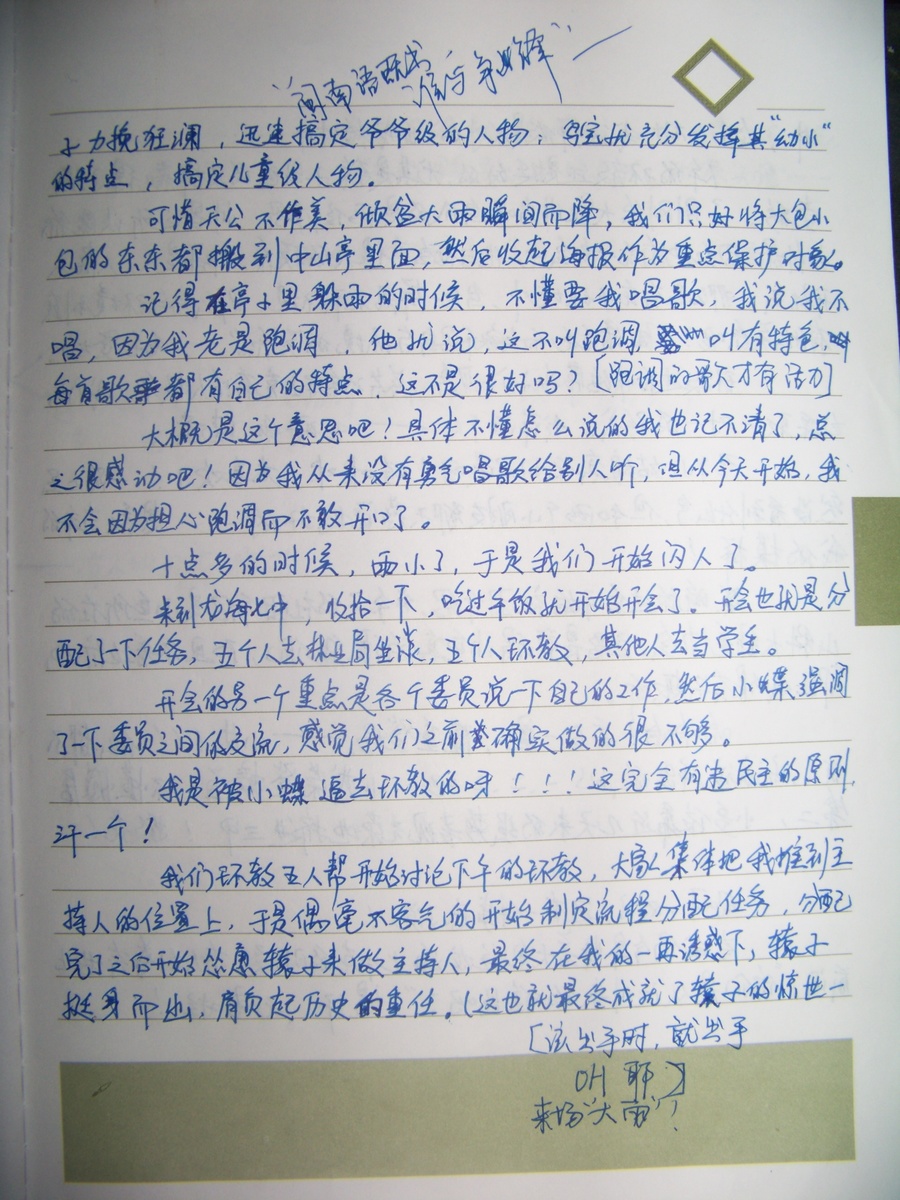 "闽南语歌
谁与争锋"
子力挽狂澜，迅速搞定爷爷级的人物；宝扰充分发挥其"幼小"
的特点，搞定儿童级人物。
可惜天公不作美，倾盆大雨瞬间而降，我们只好将大包小
包的东东都搬到中山亭里面，然后收起海报作为重点保护对象。
记得在亭子里躲雨的时候，不懂要我唱歌，我说我不
唱，因为我老是跑调，他就说，这不叫跑调，叫有特色，
每首歌都有自己的特点，这不是很好吗？[跑调的歌才有活力]
大概是这个意思吧！具体不懂怎么说的我也记不清了，总
之很感动吧！因为我从来没有勇气唱歌给别人听，但从今天开始，我
不会因为担心跑调而不敢开口了。
十点多的时候，雨小了，于是我们开始闪人了。
来到龙海七中，收拾一下，吃过午饭就开始开会了。开会也就是分
配了一下任务，五个人去林业局坐谈，五个人环教，其他人去当学生。
开会的另一个重点是各个委员说一下自己的工作，然后小蝶强调
了一下委员之间的交流，感觉我们之前确实做的很不够。
我是被小蝶逼去环教的呀！！！这完全有违民主的原则，
汗一个！
我们环教五人帮开始讨论下午的环教，大家集体把我推到主
持人的位置上，于是偶毫不客气的开始制定流程分配任务，分配
完了之后开始怂恿辕子来做主持人，最终在我的一再诱惑下，辕子
挺身而出，肩负起历史的重任。（这也就最终成就了辕子的惊世一
[该出手时，就出手
OH 耶]
来场"大雨"！